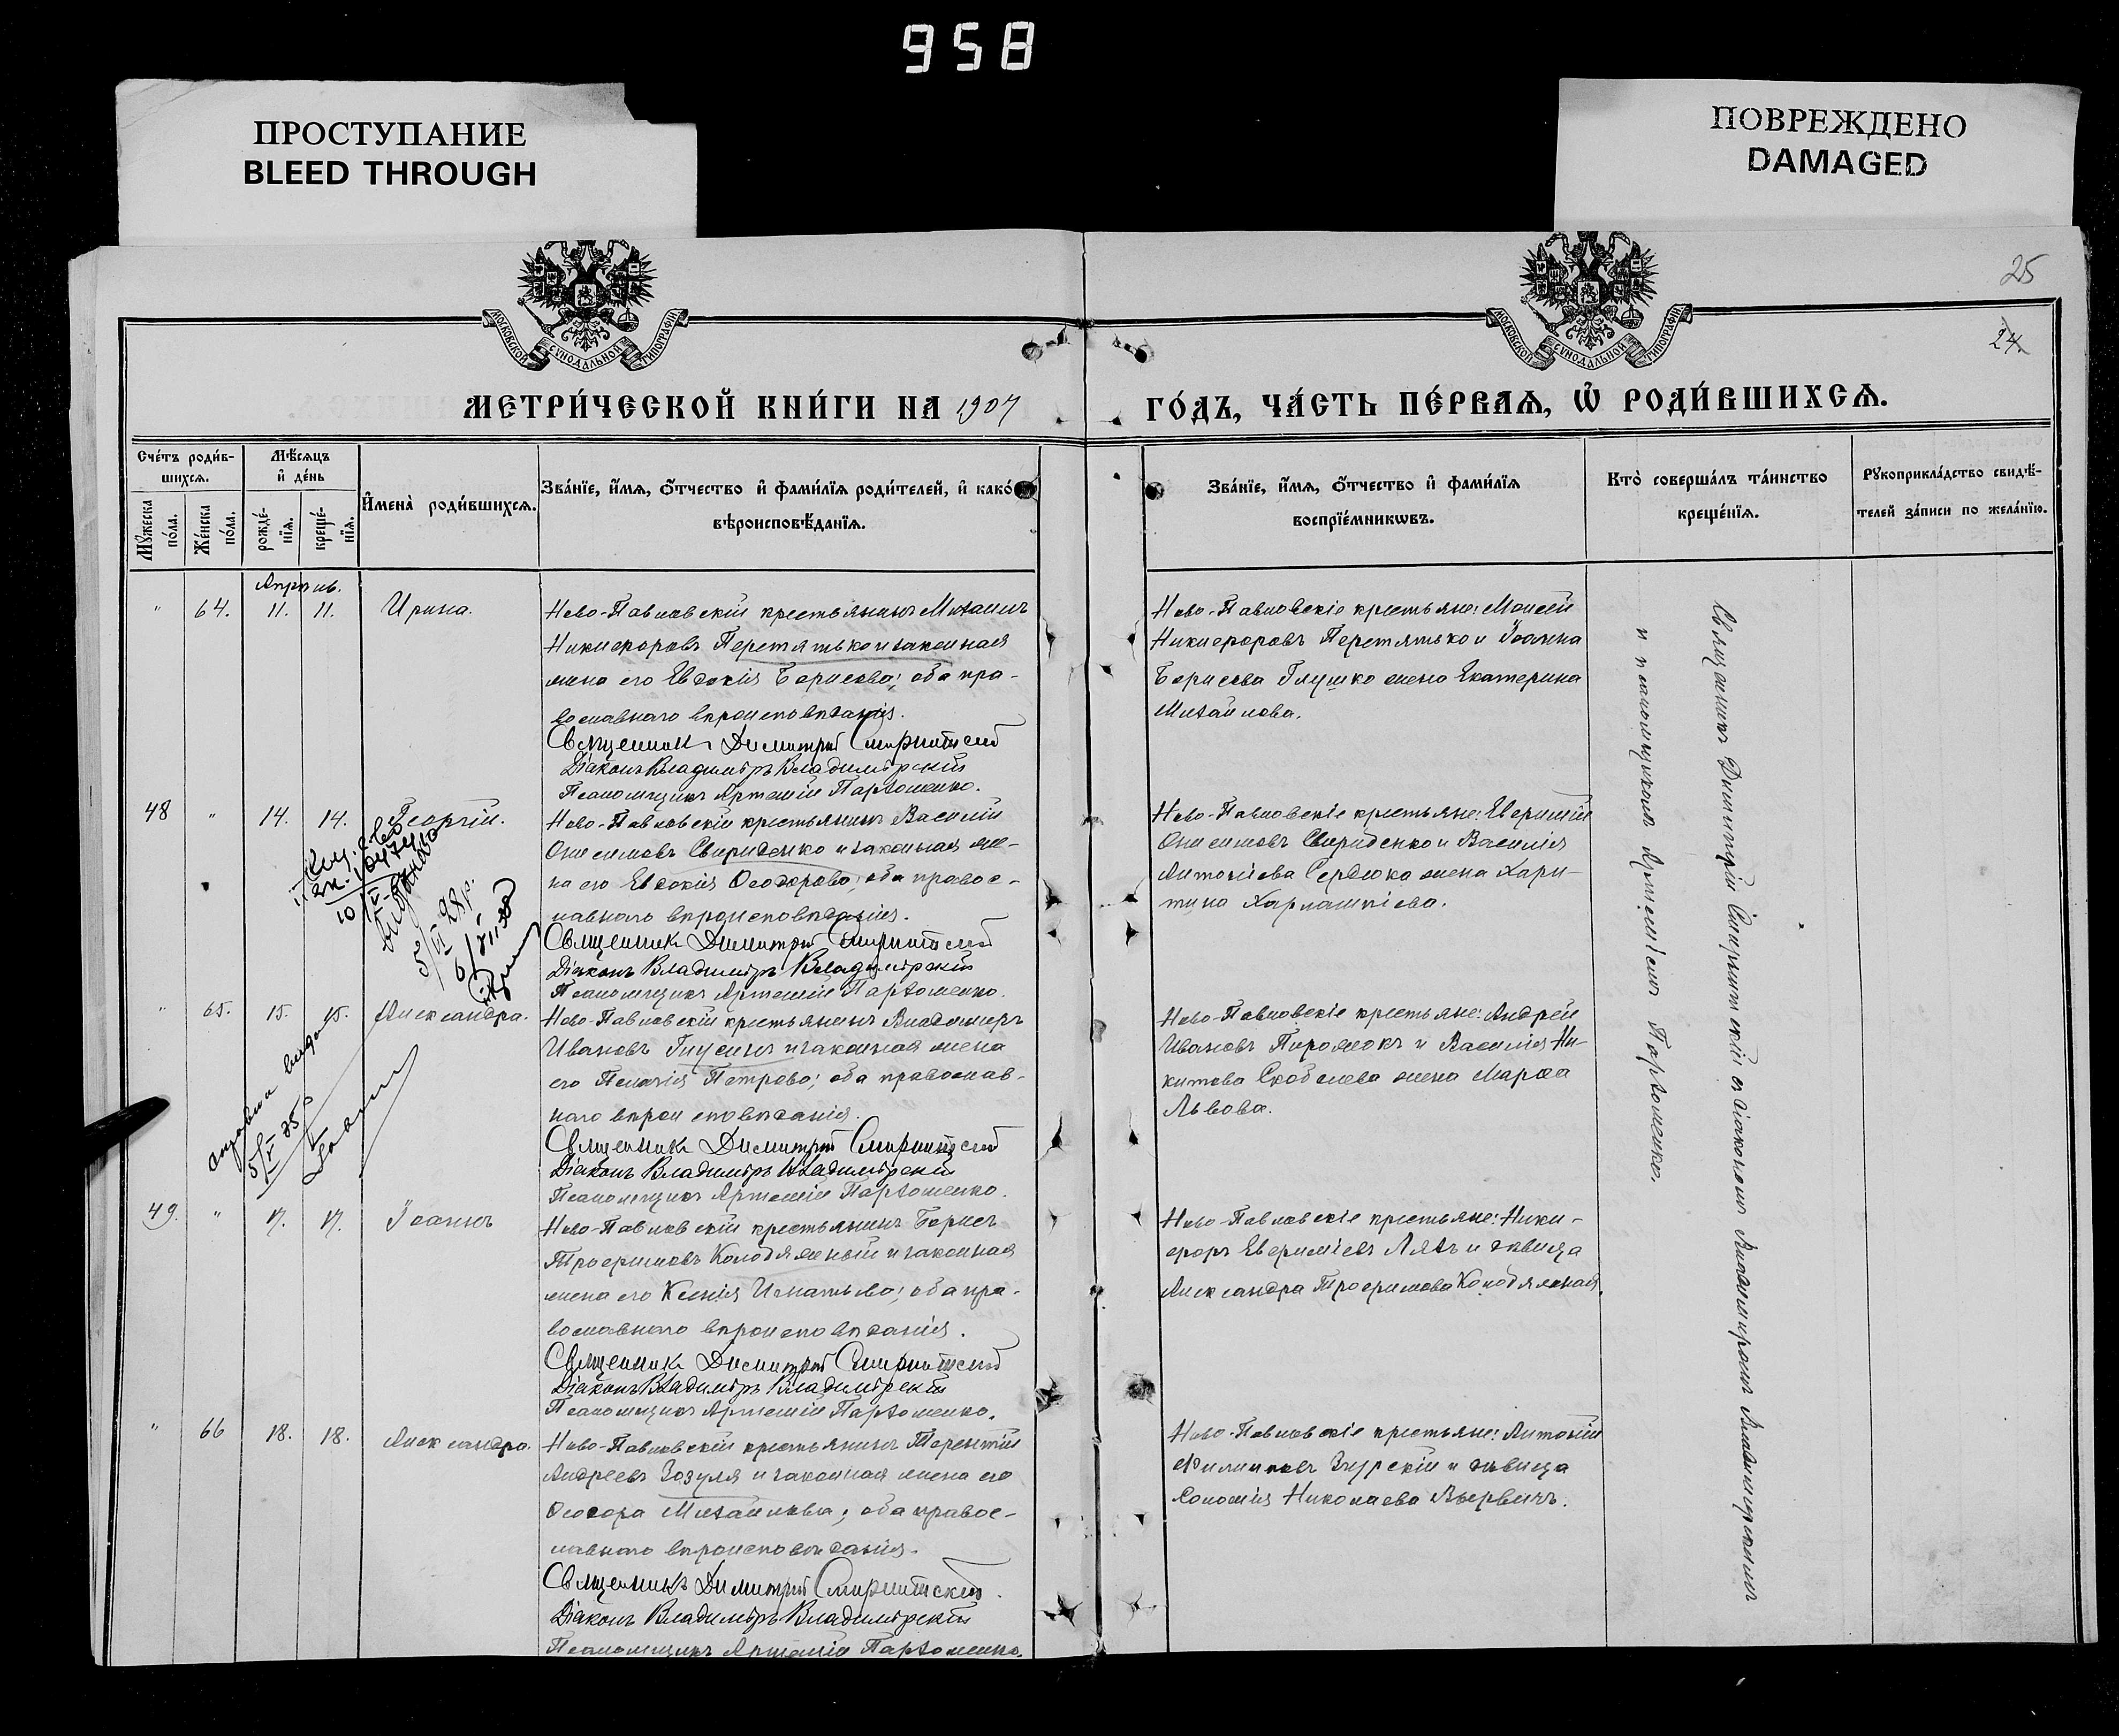 958
ПРОСТУПАНИЕ
BLEED THROUGH
ПОВРЕЖДЕНО
DAMAGED
МОСКОВСКОЙ СѴНОДАЛЬНОЙ ТИПОГРАФІИ
МОСКОВСКОЙ СѴНОДАЛЬНОЙ ТИПОГРАФІИ
25
24
МЕТРИ́ЧЕСКОЙ КНИ́ГИ НА 1907
ГО́ДЪ, ЧА́СТЬ ПЕ́РВАѦ, Ѡ҆ РОДИ́ВШИХСѦ.
Сче́тъ роди́в-
шихсѧ.
Мꙋ́жеска по́ла.
Же́нска по́ла.
Мѣ́сѧцъ
и҆ де́нь
рожде́-
нїѧ.
креще́-
нїѧ.
И҆мена̀ роди́вшихсѧ.
Зва́нїе, и҆́мѧ, ѻ҆́тчество и҆ фами́лїѧ роди́телей, и҆ како́
вѣроисповѣ́данїѧ.
Зва́нїе, и҆́мѧ, ѻ҆́тчество и҆ фами́лїѧ
воспрїе́мникѡвъ.
Кто̀ соверша́лъ та́инство
креще́нїѧ.
Рꙋкоприкла́дство свидѣ́-
телей за́писи по жела́нїю.
Апрѣль.
" 64. 11. 11. Ирина.
Ново-Павловскій крестьянинъ Михаилъ
Никифоровъ Перетятько и законная
жена его Евдокія Борисова; оба пра-
вославнаго вѣроисповѣданія.
Священникъ Димитрій Смирнитскій
Діаконъ Владиміръ Владимірскій
Псаломщикъ Артемій Пархоменко.
Ново-Павловскіе крестьяне: Моисей
Никифоровъ Перетятько и Іоанна
Борисова Глушко жена Екатерина
Михайлова.
48 " 14. 14. Георгій.
Ново-Павловскій крестьянинъ Василій
Онисимовъ Свириденко и законная же-
на его Евдокія Ѳеодорова; оба правос-
лавнаго вѣроисповѣданія.
Священникъ Димитрій Смирнитскій
Діаконъ Владиміръ Владимірскій
Псаломщикъ Артемій Пархоменко.
Ново-Павловскіе крестьяне: Евфимій
Онисимовъ Свириденко и Василія
Антоніева Сердюка жена Хари-
тина Харлампіева.
5/VI 28 р.
" 65. 15. 15. Александра.
Ново-Павловскій крестьянинъ Владимиръ
Ивановъ Гнусинъ и законная жена
его Пелагія Петрова; оба православ-
наго вѣроисповѣданія.
Священникъ Димитрій Смирнитскій
Діаконъ Владиміръ Владимірскій
Псаломщикъ Артемій Пархоменко.
Ново-Павловскіе крестьяне: Андрей
Ивановъ Пирожокъ и Василія Ни-
китова Скобелева жена Марѳа
Львова.
49. " 17. 17. Іоаннъ
Ново-Павловскій крестьянинъ Борисъ
Трофимовъ Колодяжный и законная
жена его Ксенія Игнатьева; оба пра-
вославнаго вѣроисповѣданія.
Священникъ Димитрій Смирнитскій
Діаконъ Владиміръ Владимірскій
Псаломщикъ Артемій Пархоменко.
Ново-Павловскіе крестьяне: Ники-
форъ Евфиміевъ Ляхъ и дѣвица
Александра Трофимова Колодяжная.
" 66 18. 18. Александра.
Ново-Павловскій крестьянинъ Терентій
Андреевъ Зозуля и законная жена его
Ѳеодора Михайлова; оба правос-
лавнаго вѣроисповѣданія.
Священникъ Димитрій Смирнитскій.
Діаконъ Владиміръ Владимірскій
Псаломщикъ Артемій Пархоменко.
Ново-Павловскіе крестьяне: Антоній
Филипповъ Згурскій и дѣвица
Соломія Николаева
Священникъ Димитрій Смирнитскій съ діакономъ Владимиромъ Владимірскимъ
и псаломщикомъ Артеміемъ Пархоменко.